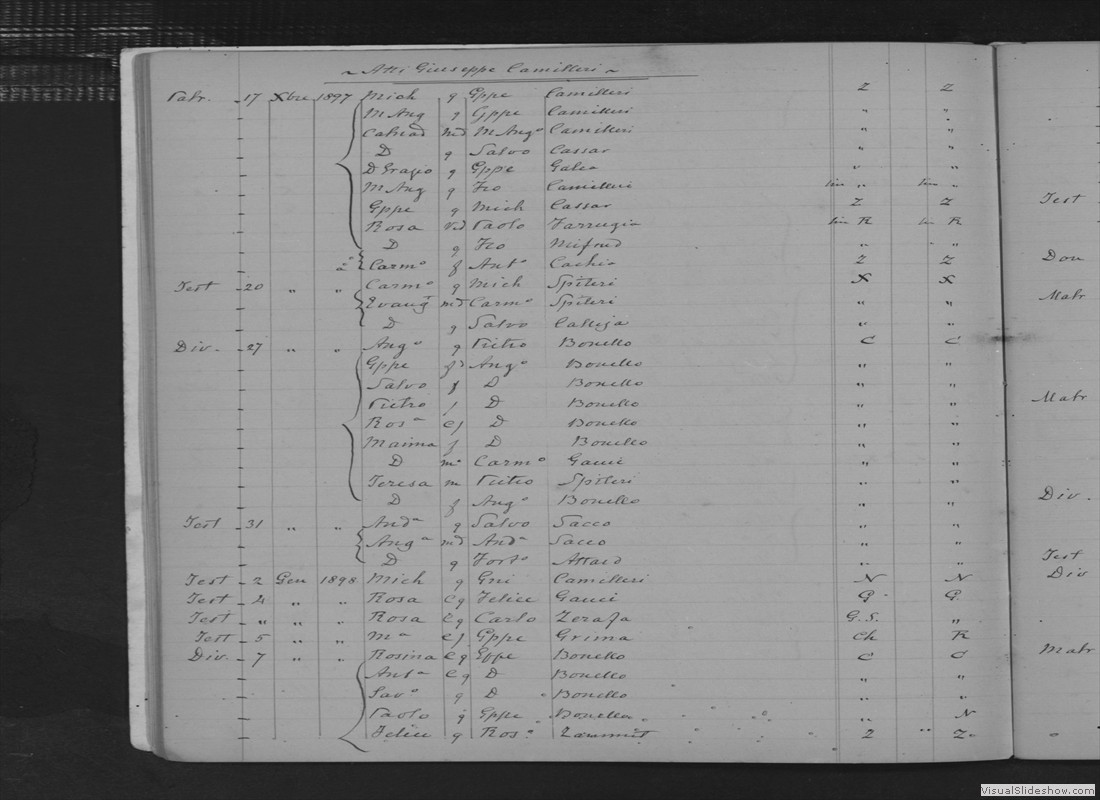 ~ Atti Giuseppe Camilleri ~
Patr. 17 Xbre 1897 Mich g Gppe Camilleri Z Z
M Ang g Gppe Camilleri " "
md M Angº Camilleri " "
D g Salvo Cassar " "
D Grazio g Gppe Galea " "
M Ang g Fco Camilleri " "
Gppe g Mich Cassar Z Z
Rosa Vd Paolo Farrugia R R
D g Fco Mifsud " "
Carmº f Antº Cachia Z Z
Test 20 " " Carmº g Mich Spiteri X X
Evang md Carmº Spiteri " "
D g Salvo Calleja " "
Div. 27 " " Angº g Pietro Bonello C C
Gppe f Angº Bonello " "
Salvo f D Bonello " "
Pietro f D Bonello " "
Rosª cf D Bonello " "
Marina f D Bonello " "
D mº Carmº Gauci " "
Teresa m Pietro Spiteri " "
D f Angº Bonello " "
Test 31 " " Andª g Salvo Sacco " "
Angª md Andª Sacco " "
D g Fortº Attard " "
Test 2 Gen 1898 Mich g Gni Camilleri N N
Test 4 " " Rosa cg Felice Gauci G. G
Test " " " Rosa cg Carlo Zerafa G.S. "
Test 5 " " Mª cf Gppe Grima Ch R
Div. 7 " " Rosina cg Gppe Bonello C C
Antª cg D Bonello " "
Savº g D Bonello " "
Paolo g Gppe Bonello " N
Felice g Rosº Zammit Z " Z
Test
Don
Matr
Matr
Div.
Test
Div
Matr
VisualSlideshow.com